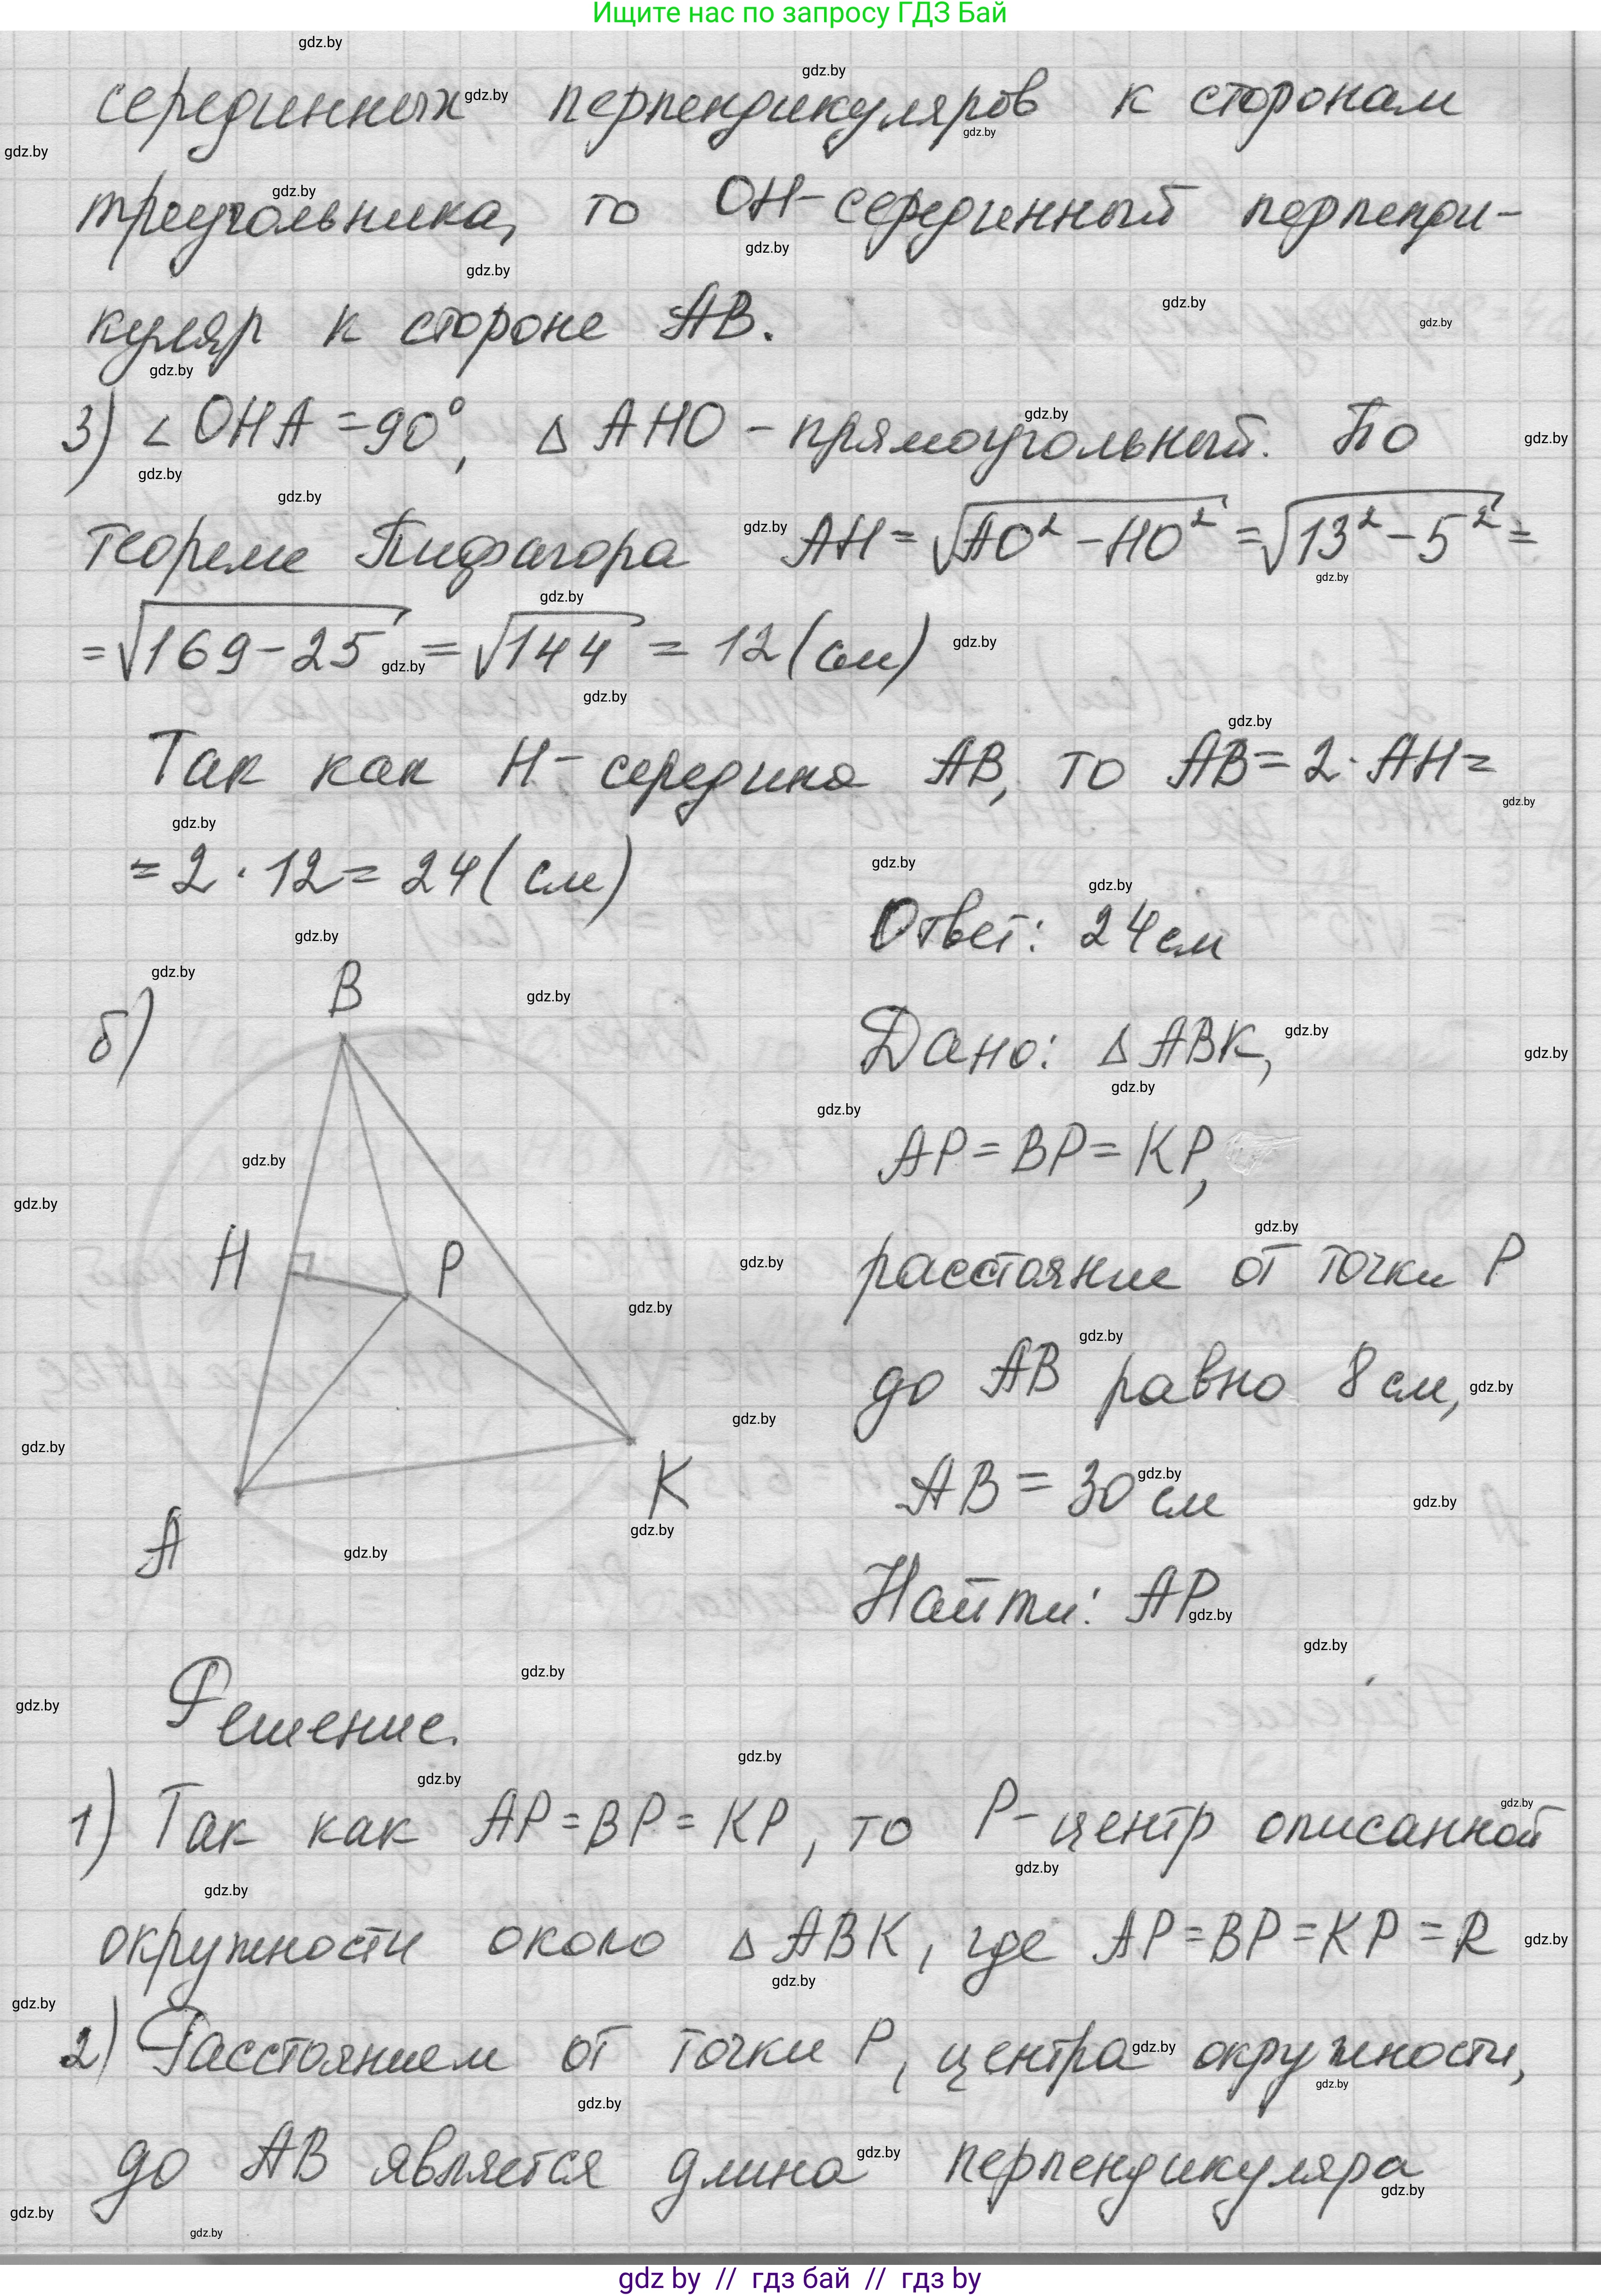 Ищите нас по запросу ГДЗ Бай
серединных перпендикуляров к сторонам
треугольника, то OH - серединный перпенди-
куляр к стороне AB.
3) ∠ OHA = 90°, △ AHO - прямоугольный. По
теореме Пифагора AH = √(AO² - HO²) = √(13² - 5²) =
= √(169 - 25) = √144 = 12 (см)
Так как H - середина AB, то AB = 2 · AH =
= 2 · 12 = 24 (см)
Ответ: 24 см
б)
B
H
P
A
K
Дано: △ ABK,
AP = BP = KP,
расстояние от точки P
до AB равно 8 см,
AB = 30 см
Найти: AP
Решение.
1) Так как AP = BP = KP, то P - центр описанной
окружности около △ ABK, где AP = BP = KP = R
2) Расстоянием от точки P, центра окружности,
до AB является длина перпендикуляра
gdz by // гдз бай // гдз by